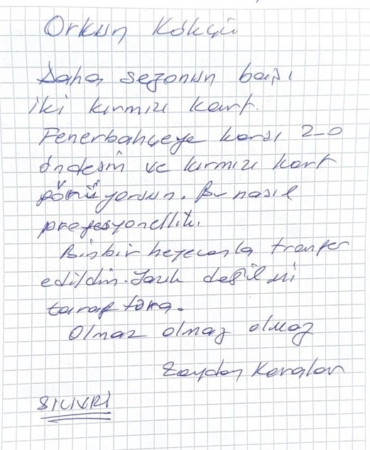 Orkun Kökçü
Daha sezonun başı
iki kırmızı kart.
Fenerbahçeye karşı 2-0
öndesin ve kırmızı kart
görüyorsun. Bu nasıl
profesyonellik.
Binbir heyecanla transfer
edildin. Yazık değil mi
taraftara.
Olmaz olmaz olmaz
Zeydan Karalar
SİLİVRİ